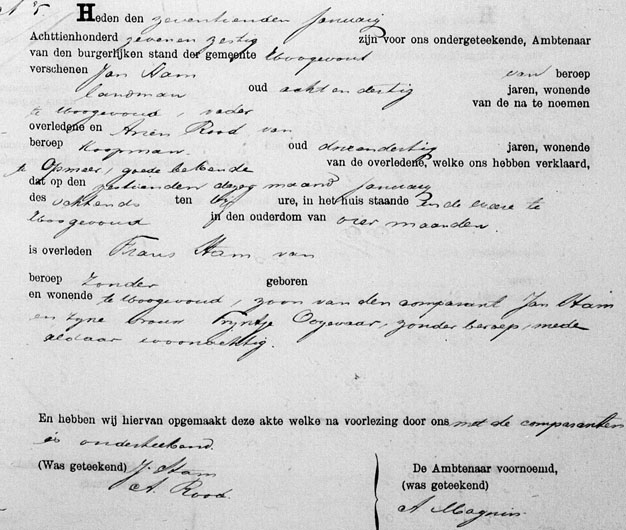 Heden den zeventienden Januarij
Achttienhonderd zevenenzestig zijn voor ons ondergeteekende, Ambtenaar
van den burgerlijken stand der gemeente Hoogwoud
verschenen Jan Stam van beroep
landman oud achtendertig jaren, wonende
te Hoogwoud, vader van de na te noemen
overledene en Arien Rood van
beroep Koopman oud drieendertig jaren, wonende
te Opmeer, goede bekende van de overledene, welke ons hebben verklaard,
dat op den zestienden dezer maand Januarij
des ochtends ten ure, in het huis staande in de te
Hoogwoud in den ouderdom van maanden.
is overleden Frans Stam van
beroep Zonder geboren
en wonende te Hoogwoud, zoon van den comparant Jan Stam
en zijne vrouw Trijntje Ooyevaar, zonder beroep, mede
aldaar woonachtig.
En hebben wij hiervan opgemaakt deze akte welke na voorlezing door ons met de comparanten
is onderteekend.
(Was geteekend) J. Stam De Ambtenaar voornoemd,
A. Rood. (was geteekend)
A Magnin.